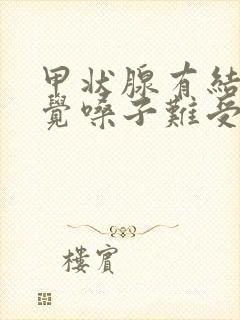 甲状腺有結
覺嗓子難受
樓賓